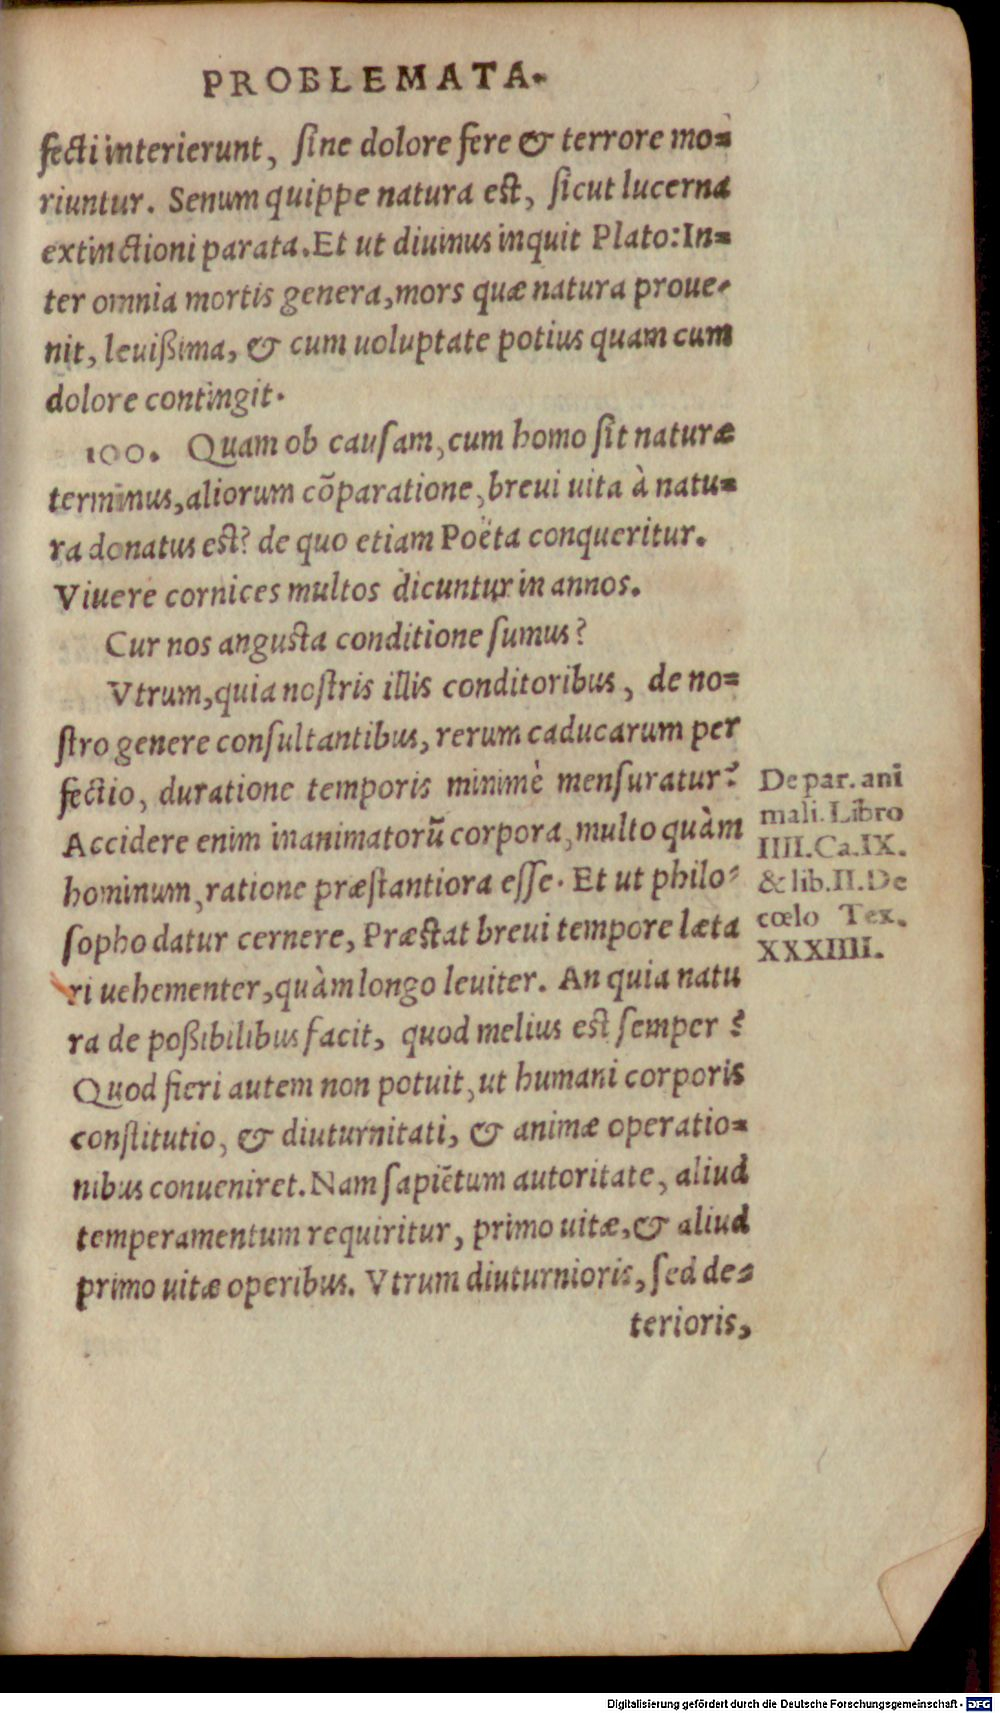 PROBLEMATA.
fecti interierunt, ſine dolore fere & terrore mo=
riuntur. Senum quippe natura eſt, ſicut lucerna
extinctioni parata. Et ut diuinus inquit Plato: In=
ter omnia mortis genera, mors quæ natura proue=
nit, leuißima, & cum uoluptate potius quam cum
dolore contingit.
100. Quam ob cauſam, cum homo ſit naturæ
terminus, aliorum cõparatione, breui uita à natu=
ra donatus eſt? de quo etiam Poëta conqueritur.
Viuere cornices multos dicuntur in annos.
Cur nos anguſta conditione ſumus?
Vtrum, quia noſtris illis conditoribus, de no=
ſtro genere conſultantibus, rerum caducarum per
fectio, duratione temporis minimè menſuratur?
Accidere enim inanimatorũ corpora, multo quàm
hominum, ratione præſtantiora eſſe. Et ut philo=
ſopho datur cernere, Præſtat breui tempore læta
ri uehementer, quàm longo leuiter. An quia natu
ra de poßibilibus facit, quod melius eſt ſemper?
Quod fieri autem non potuit, ut humani corporis
conſtitutio, & diuturnitati, & animæ operatio=
nibus conueniret. Nam ſapiẽtum autoritate, aliud
temperamentum requiritur, primo uitæ, & aliud
primo uitæ operibus. Vtrum diuturnioris, ſed de=
terioris,
De par. ani
mali. Libro
IIII. Ca. IX.
& lib. II. De
cœlo Tex.
XXXIIII.
Digitalisierung gefördert durch die Deutsche Forschungsgemeinschaft - DFG